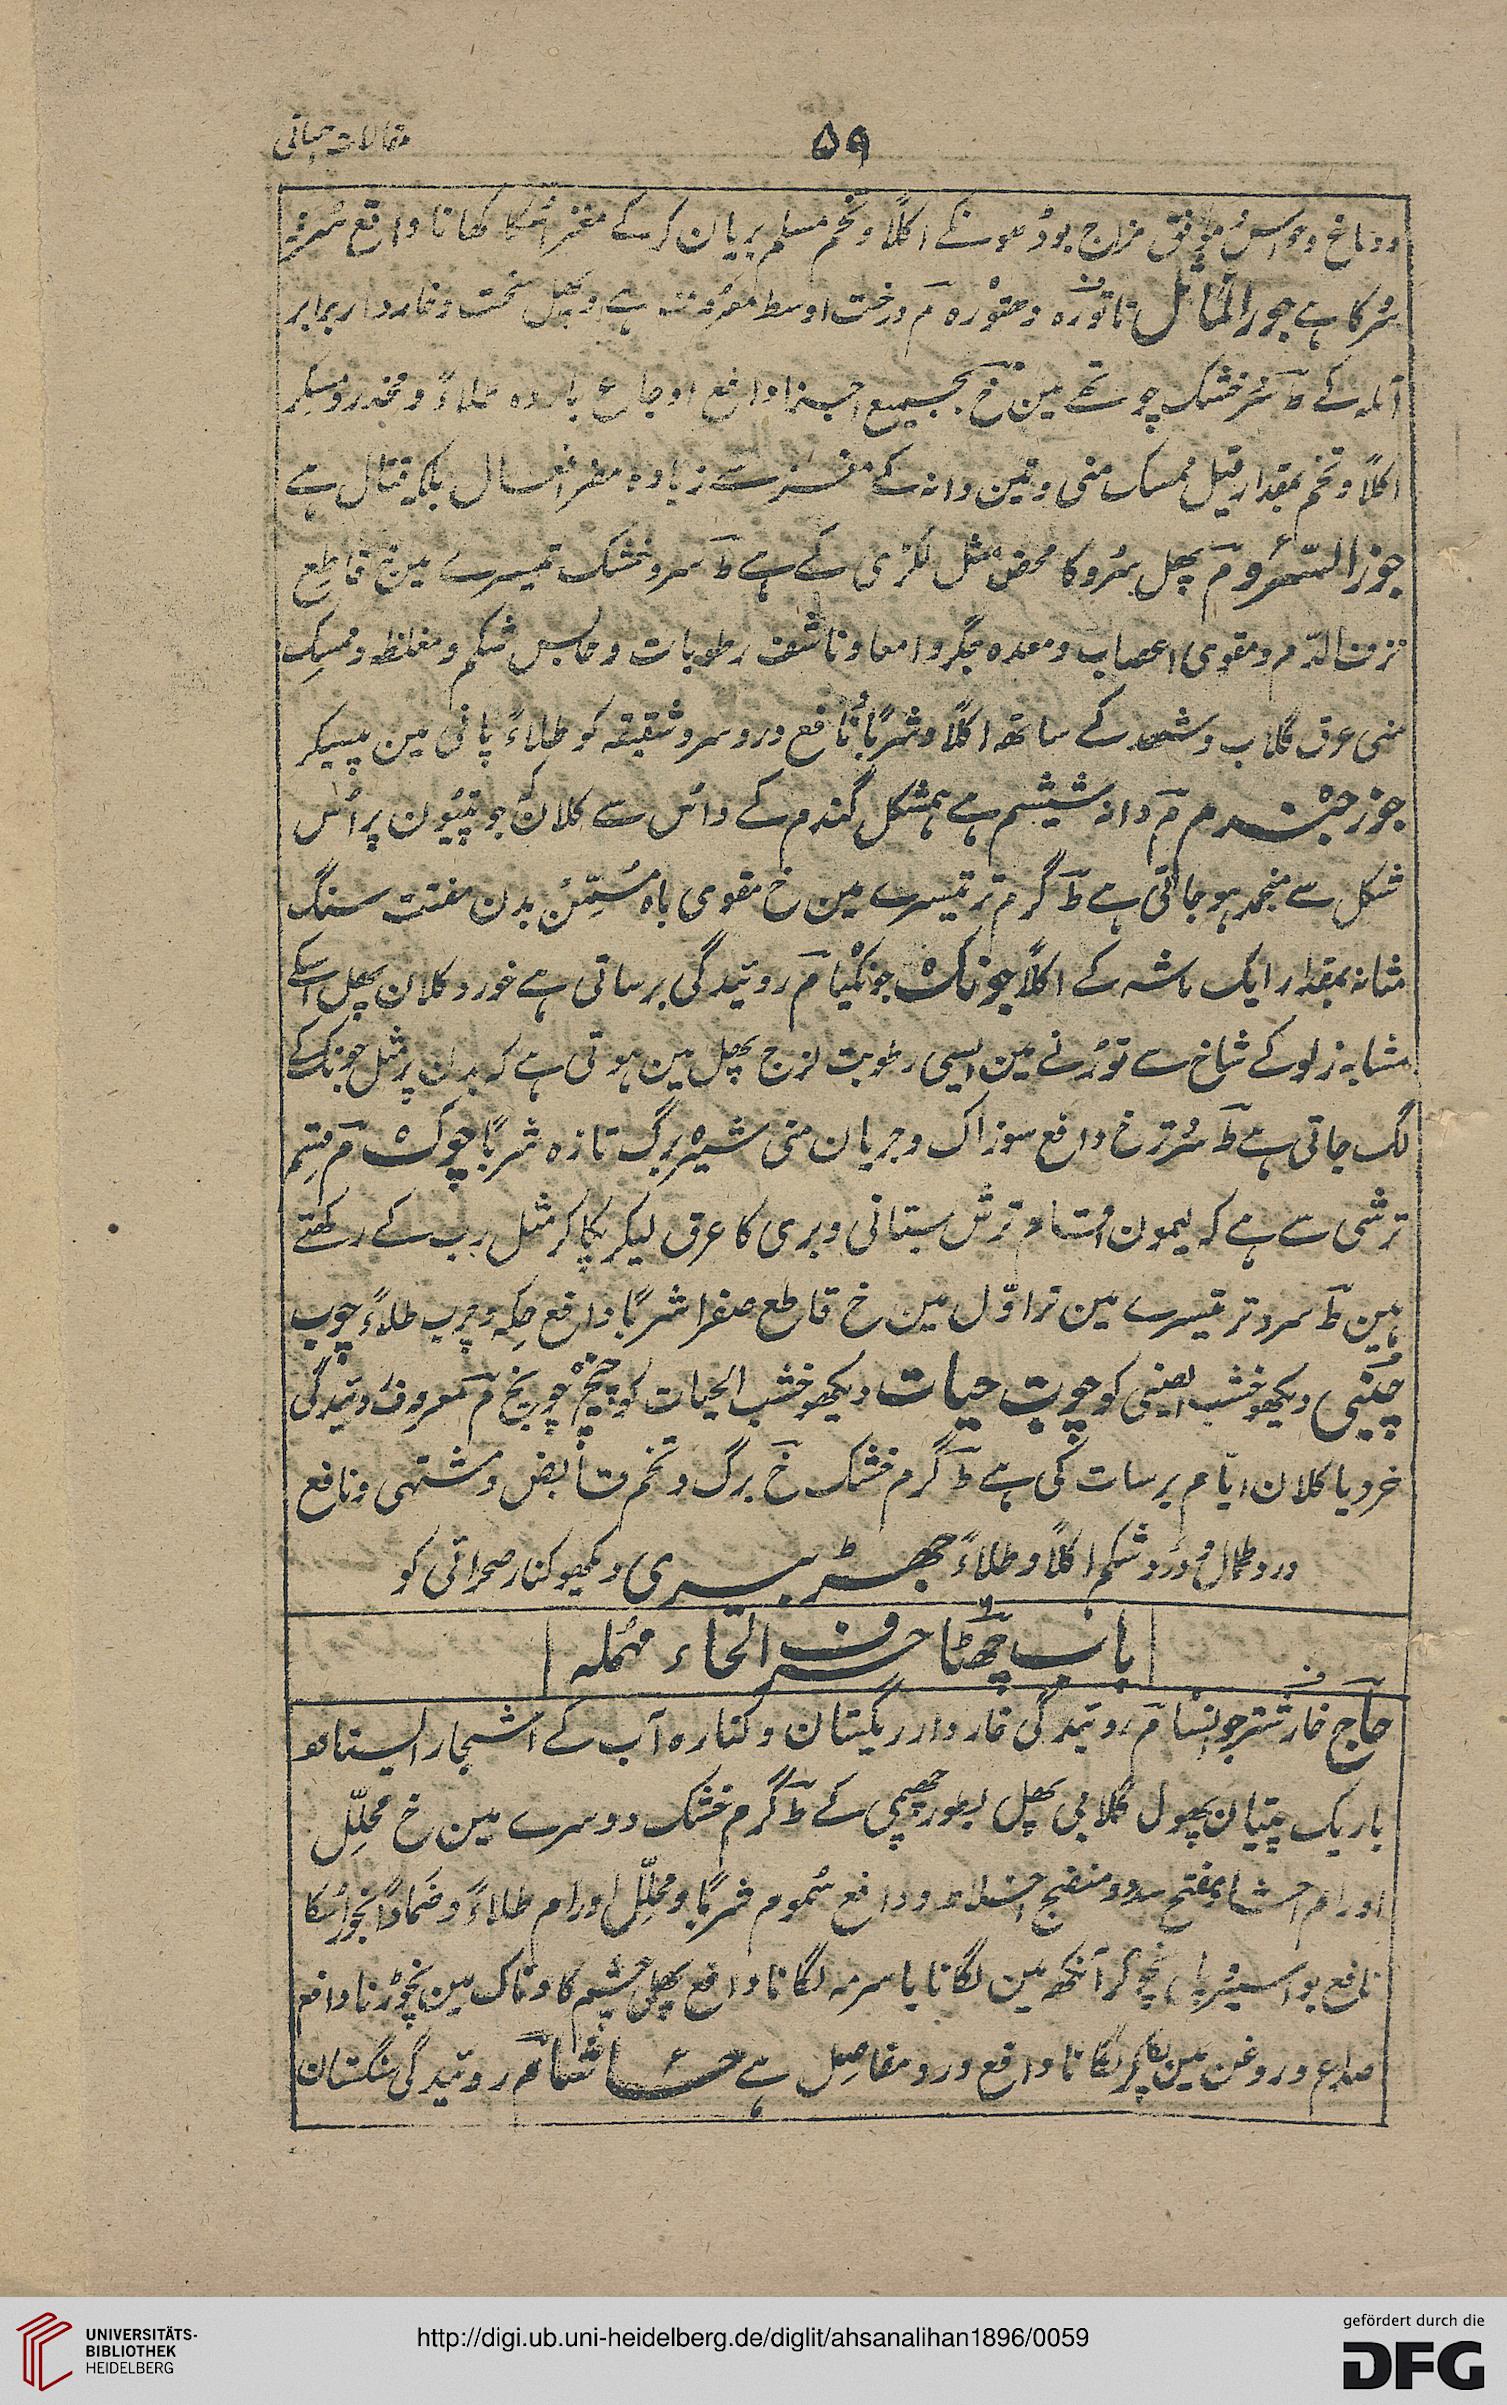 ۵۹
مقالات احسانی
ودماغ وحواس موفق مزاج بودھون کے اکلاً وتخم مسلم بریان کرکے مغز اُسکا کھانا دافع
سُرکا ہے جوزالماثل تاتورہ دھتورہ مَ درخت اوسط معروف ہے اوپھل سخت وخاردار برابر
آملہ کے طَ سرد خشک چوتھے مین خَ بجمیع اجزا دافع اوجاع باردہ طلاءً ومخدر ومسکر
اکلاً وتخم بمقدار قلیل ممسک منی وتین دانہ کے مغز سے زیادہ مضر افعال بلکہ قتال ہے
جوزالسّرو مَ پھل سرو کا محض مثل لکڑی کے ہے طَ سرد خشک تیسرے مین خَ قاطع
نزف الدّم ومقوی اعصاب ومعدہ وجگر وامعا وناشف رطوبات وحابس شکم ومغلظ وممسک
منی عرق گلاب وشہد کے ساتھ اکلاً وشرباً نافع دردسر وشقیقہ کو طلاءً پانی مین پیسکر
جوزجندم مَ دانہ شیشم ہے ہمشکل گندم کے واُس سے کلان جو پتیون پر اُس
شکل سے منجمد ہوجاتی ہے طَ گرم تر تیسرے مین خ مقوی باہ مُسَمِّن بدن مفتت سنگ
مثانہ بمقدار ایک ماشہ کے اکلاً جونک جونکیا مَ روئیدگی برساتی ہے خورد کلان پھل اسکے
مشابہ زلو کے شاخ سے توڑنے مین ایسی رطوبت لزج پھل مین ہوتی ہے کہ بدن پر مثل جونک کے
لگ جاتی ہے طَ سرد تر خ دافع سوزاک وجریان منی شیرہ برگ تازہ شرباً چوک مَ قسم
ترشی سے ہے کہ لیمون واقسام ترش بستانی وبری کا عرق لیکر پکاکر مثل رب کے رکھتے
ہین طَ سرد تر تیسرے مین تر اوّل مین خ قاطع صفرا شرباً دافع حکہ وجرب طلاءً چوب
چینی دیکھو خشب الصینی کو چوب حیات دیکھو خشب الحیات کو چنچ چوریخ مَ معروف روئیدگی
خرد یا کلان ایّام برسات کی ہے طَ گرم خشک خَ برگ وتخم قابض ومشتہی ونافع
درد طحال ودرد شکم اکلاً وطلاءً جھڑبیری دیکھو کنار صحرائی کو
باب چھٹا حرف الحاء مہملہ
حاج خارشتر جوانسا مَ روئیدگی خاردار ریگستان وکنارہ آب کے اشجار ایستادہ
باریک پتیان پھول گلابی پھل بطور چھیمی کے طَ گرم خشک دوسرے مین خ محلِّل
اورام احشا ومفتح سدد ومنضج اخلاط ودافع سُموم شرباً ومحلِّل اورام طلاءً وضماداً بخور اُسکا
نافع بواسیر شیرہ آنکھ مین لگانا یا سرمہ لگانا دافع پھلی چشم کا وناک مین نچوڑنا دافع
صداع وروغن مین پکاکر لگانا دافع درد مفاصل ہے حاشا مَ روئیدگی سنگستان
UNIVERSITÄTS-
BIBLIOTHEK
HEIDELBERG
http://digi.ub.uni-heidelberg.de/diglit/ahsanalihan1896/0059
gefördert durch die
DFG